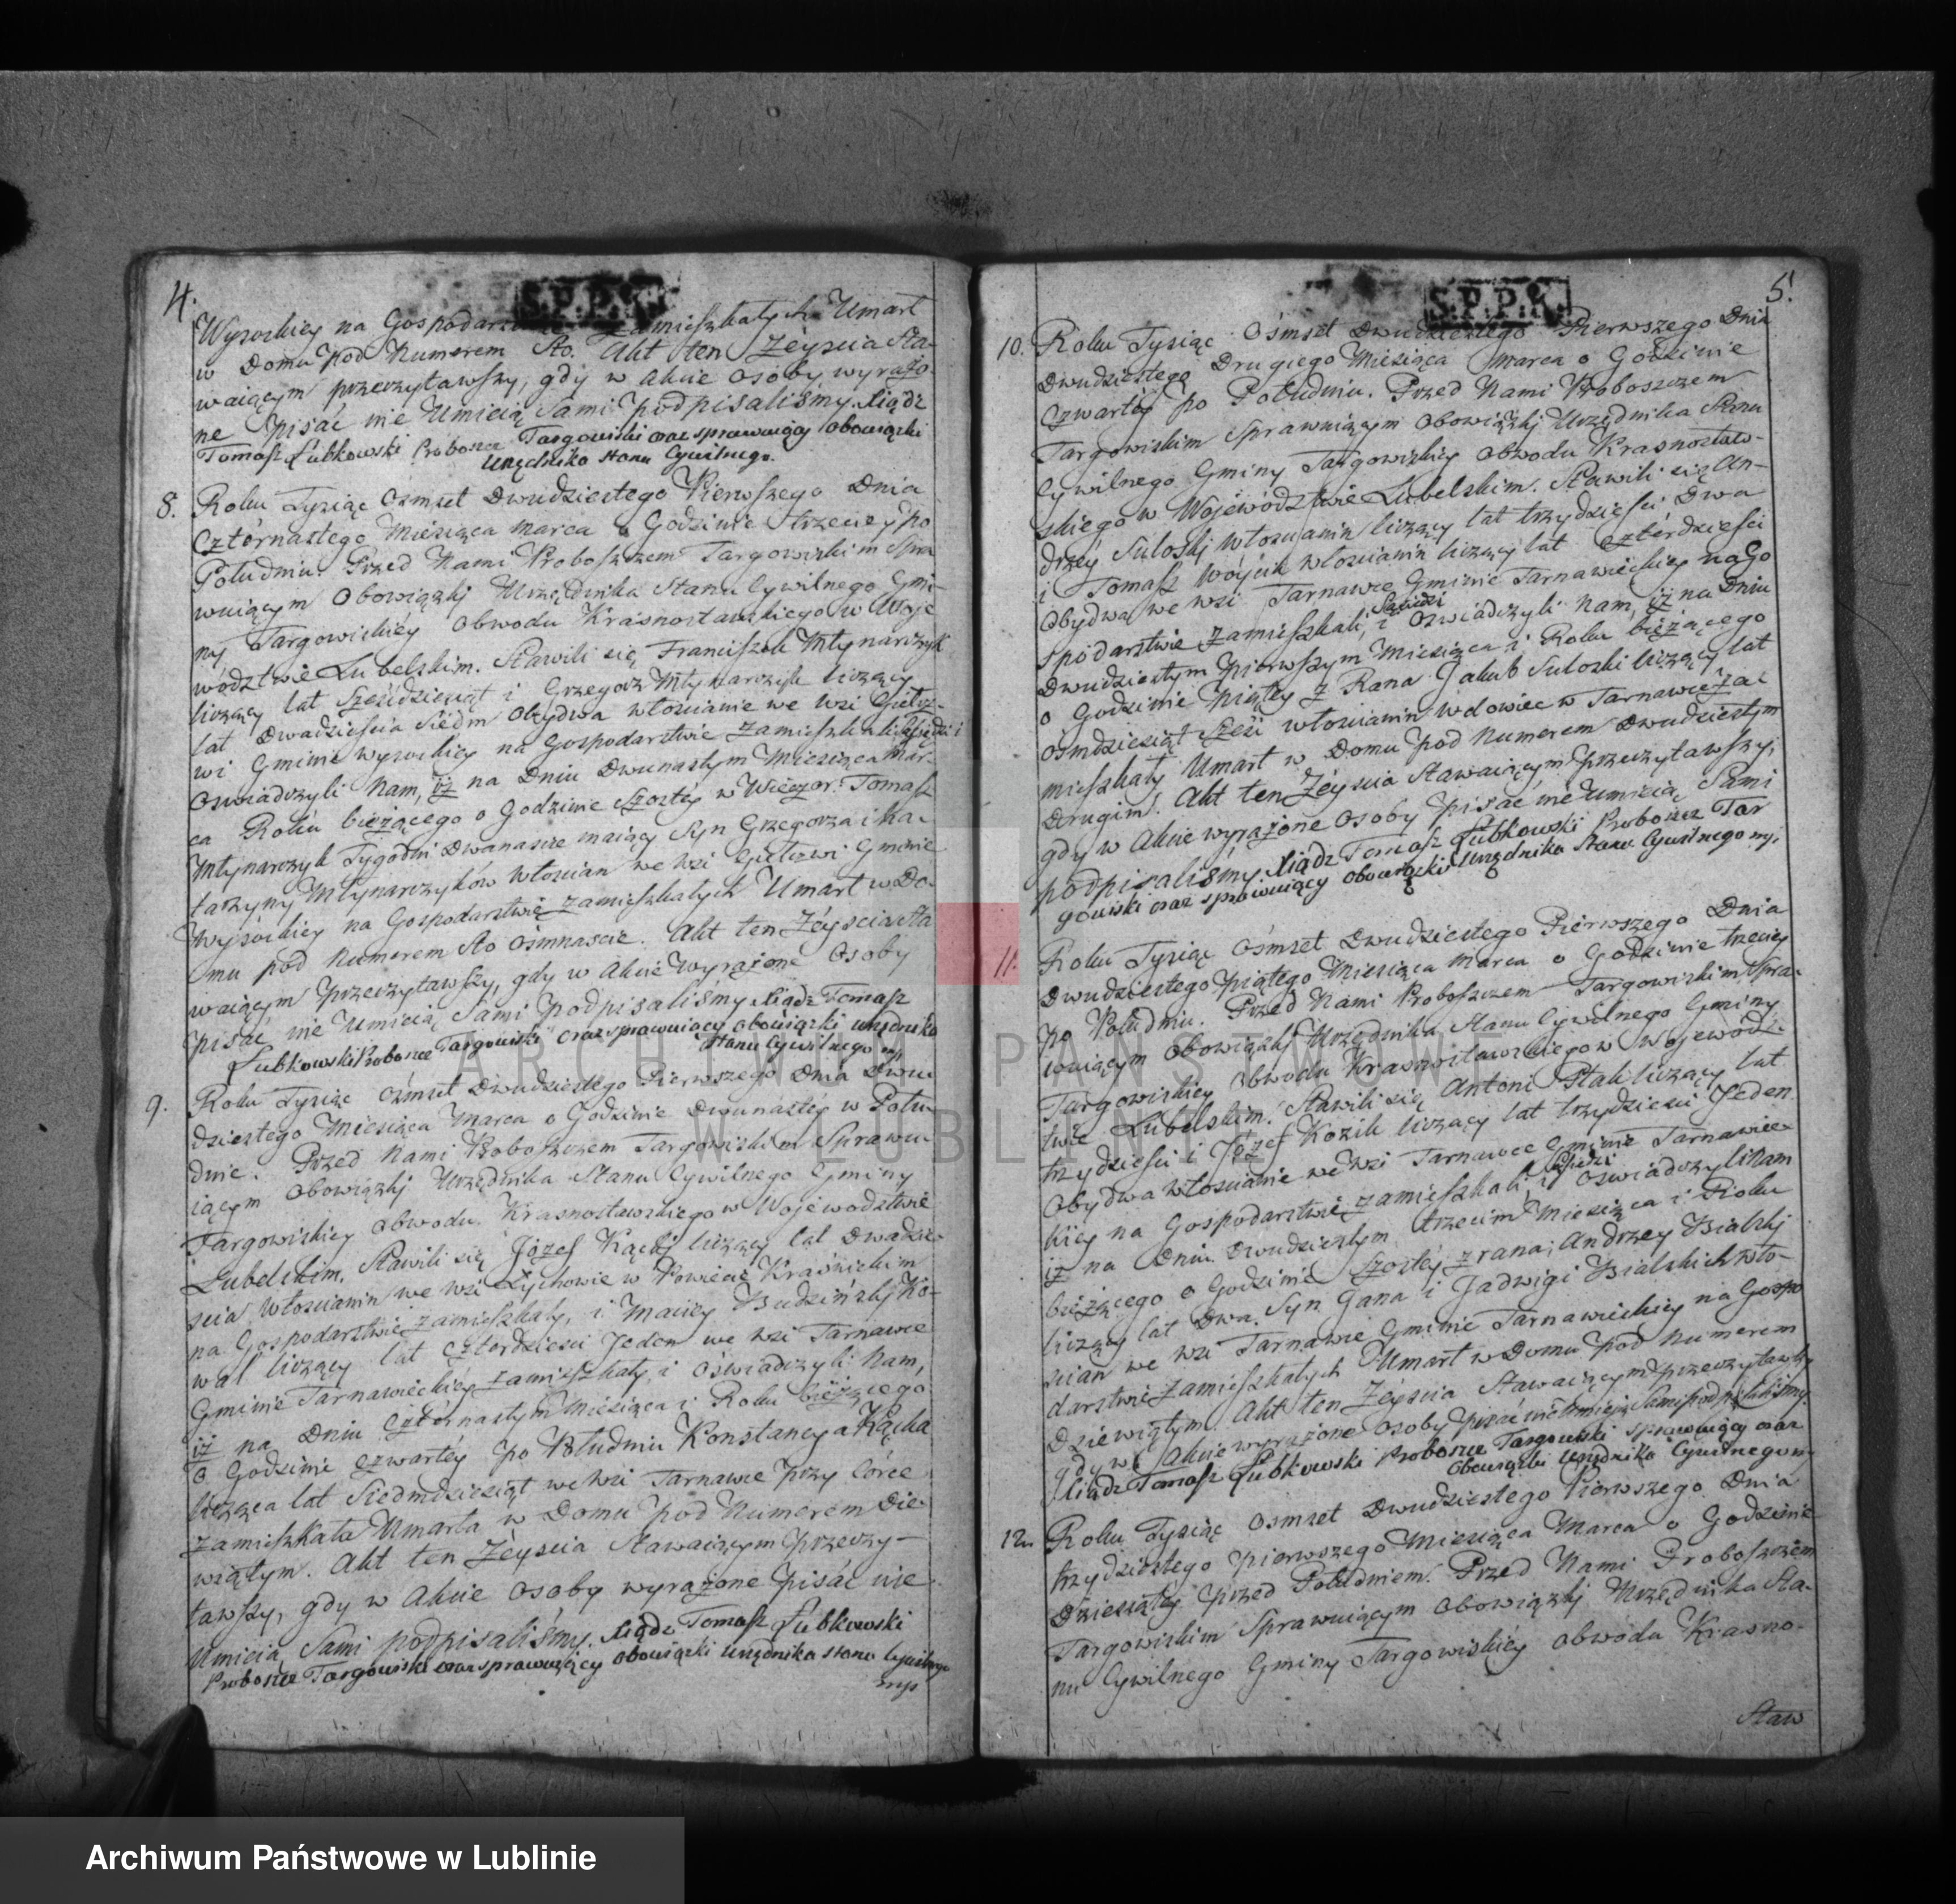 4.
S.P.P.K.
Wysoskiey na Gospodars zamieszkałych Umarł
w Domu pod Numerem Sto. Akt ten Zéyscia Sta-
waiącym przeczytawszy, gdy w Akcie osoby wyrażo
ne pisać nie Umieią Sami podpisaliśmy. Xiądz
Tomasz Łubkowski Proboszcz Targowiski oraz sprawuiący obowiązki
Urzędnika stanu Cywilnego.
8. Roku Tysiąc osmset Dwudziestego Pierwszego Dnia
Cztérnastego Miesiąca Marca o Godzinie trzeciey po
Południu. Przed Nami Proboszczem Targowiskim Spra
wuiącym Obowiązkj Urzędnika Stanu Cywilnego Gmi-
ny Targowiskiéy Obwodu Krasnostawskiego w Woje
wództwie Lubelskim. Stawili się Franciszek Młynarczyk
liczący lat Sześćdziesiąt i Grzegorz Młynarczyk liczący
lat Dwadzieścia Siedm obydwa włoscianie we wsi Giełcz-
wi Gminie wysoskiey na Gospodarstwie zamieszkali Sąsiedzi i
oswiadczyli Nam, iż na Dniu Dwunastym Miesiąca Mar-
ca Roku bieżącego o Godzinie Szostéy w Wieczor. Tomasz
Młynarczyk Tygodni Dwanascie maiący Syn Grzegorza i Ka-
tarzyny Młynarczyków włoscian we wsi Giełczwi Gminie
Wysoskiey na Gospodarstwie zamieszkałych Umarł w Do-
mu pod Numerem Sto ośmnascie. Akt ten Zéyscia Sta
waiącym przeczytawszy, gdy w Akcie wyrażone Osoby
pisać nie Umieią Sami podpisaliśmy. Xiądz Tomasz
Łubkowski Proboszcz Targowiski oraz sprawuiący obowiązki urzędnika
stanu Cywilnego mp
9. Roku Tysiąc Ośmset Dwudziestego Pierwszego Dnia Dwu-
dziestego Miesiąca Marca o Godzinie Dwunastéy w Połu-
dnie. Przed Nami Proboszczem Targowiskim Sprawu-
iącym Obowiązkj Urzędnika Stanu Cywilnego Gminy
Targowiskiey Obwodu Krasnostawskiego w Wojewodztwie
Lubelskim. Stawili się Józef Kąckj liczący lat Dwadzie-
scia włoscianin we wsi Łychowie w Powiecie Kraśnickim
na Gospodarstwie zamieszkały, i Maciey Budzińskj Ko-
wal liczący lat Czterdziesci Jeden we wsi Tarnawce
Gminie Tarnawieckiéy zamieszkały, i oświadczyli Nam,
iż na Dniu Cztérnastym Miesiąca i Roku bieżącego
o Godzinie Czwartéy po Południu Konstancya Kącka
licząca lat Siedmdziesiąt we wsi Tarnawce przy Córce
zamieszkała Umarła w Domu pod Numerem Dzie-
wiątym. Akt ten Zéyscia Stawaiącym przeczy-
tawszy, gdy w Akcie osoby wyrażone pisać nie
Umieią Sami podpisaliśmy. Xiądz Tomasz Łubkowski
Proboszcz Targowiski oraz sprawuiący obowiązki urzędnika stanu Cywilnego
mp
5.
S.P.P.K.
10. Roku Tysiąc Ośmset Dwudziestego Pierwszego Dnia
Dwudziestego Drugiego Miesiąca Marca o Godzinie
Czwartéy po Południu. Przed Nami Proboszczem
Targowiskim Sprawuiącym Obowiązkj Urzędnika Stanu
Cywilnego Gminy Targowiskiey Obwodu Krasnostaw-
skiego w Wojéwództwie Lubelskim. Stawili się An-
drzéy Suloskj włoscianin liczący lat trzydzieści Dwa
i Tomasz Wóycik włoscianin liczący lat Cztérdzieści
Obydwa we wsi Tarnawce Gminie Tarnawieckiey na Go
spodarstwie zamieszkali, i Sąsiedzi oswiadczyli Nam, iż na Dniu
Dwudziestym Pierwszym Miesiąca i Roku bieżącego
o Godzinie piątéy z Rana Jakub Suloski liczący lat
ośmdziesiąt Sześć włoscianin wdowiec w Tarnawce za-
mieszkały Umarł w Domu pod Numerem Dwudziestym
Drugim. Akt ten Zéyscia Stawaiącym przeczytawszy,
gdy w Akcie wyrażone Osoby pisać nie Umieią Sami
podpisaliśmy. Xiądz Tomasz Łubkowski Proboszcz Tar
gowiski oraz sprawuiący obowiązki Urzędnika Stanu Cywilnego mp
11. Roku Tysiąc Ośmset Dwudziestego Pierwszego Dnia
Dwudziestego piątego Miesiąca Marca o Godzinie trzeciey
po Południu. Przed Nami Proboszczem Targowiskim Spra-
wuiącym Obowiązkj Urzędnika Stanu Cywilnego Gminy
Targowiskiey Obwodu Krasnostawskiego w Wojewódz-
twie Lubelskim. Stawili się Antoni Ptak liczący lat
trzydzieści i Józef Kozik liczący lat trzydzieści Jeden
Obydwa włoscianie we wsi Tarnawce Gminie Tarnawiec-
kiey na Gospodarstwie zamieszkali, i Sąsiedzi oświadczyli Nam
iż na Dniu Dwudziestym trzecim Miesiąca i Roku
bieżącego o Godzinie Szostéy z rana; Andrzey Bialskj
liczący lat Dwa. Syn Jana i Jadwigi Bialskich wło-
scian we wsi Tarnawce Gminie Tarnawieckiey na Gospo
darstwie zamieszkałych Umarł w Domu pod Numerem
Dziewiątym. Akt ten Zéyscia Stawaiącym przeczytawszy
gdy w Akcie wyrażone osoby pisać nie Umieią Sami podpisaliśmy.
Xiądz Tomasz Łubkowski Proboszcz Targowiski sprawuiący oraz
Obowiązki Urzędnika Cywilnego mp
12. Roku Tysiąc Osmset Dwudziestego Pierwszego Dnia
trzydziestego pierwszego Miesiąca Marca o Godzinie
Dziesiątéy przed Południem. Przed Nami Proboszczem
Targowiskim Sprawuiącym Obowiązkj Urzędnika Sta-
nu Cywilnego Gminy Targowiskiéy Obwodu Krasno-
Staw
ARCHIWUM PAŃSTWOWE
W LUBLINIE
Archiwum Państwowe w Lublinie